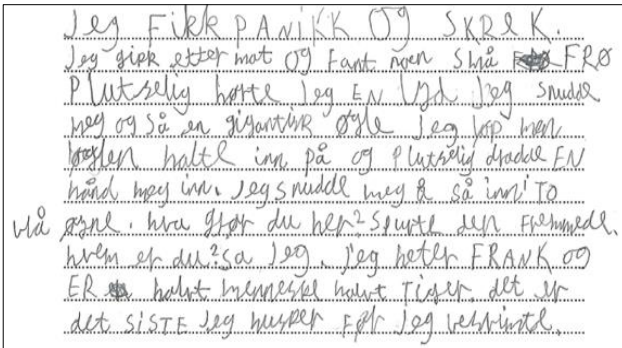 Jeg FIKK PANIKK OG SKREK.
Jeg gikk etter mat og Fant noen små FRØ
Plutselig hørte Jeg EN lyd Jeg snudde
meg og så en gigantisk øgle Jeg løp men
øglen halte inn på og Plutselig dradde EN
hånd meg inn. Jeg snudde meg & så inn i TO
blå øyne. hva gjør du her? Spurte den Fremmede.
hvem er du? sa Jeg. Jeg heter FRANK og
ER halvt menneske halvt Tiger. det er
det SISTE Jeg husker Før Jeg besvimte.